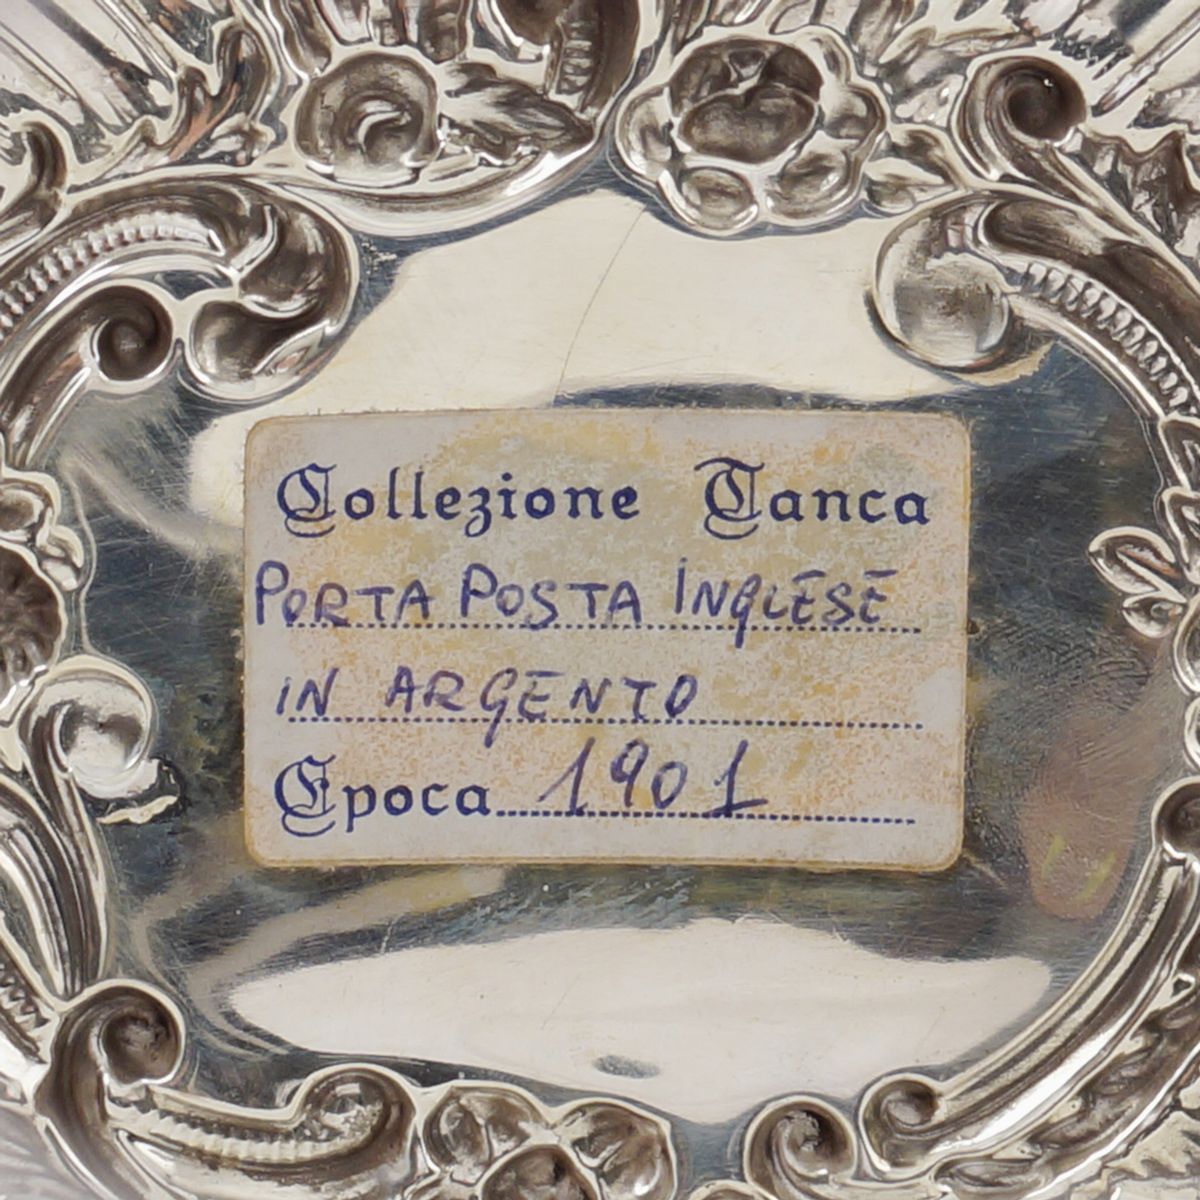 Collezione Tanca
PORTA POSTA INGLESE
IN ARGENTO
Epoca 1901